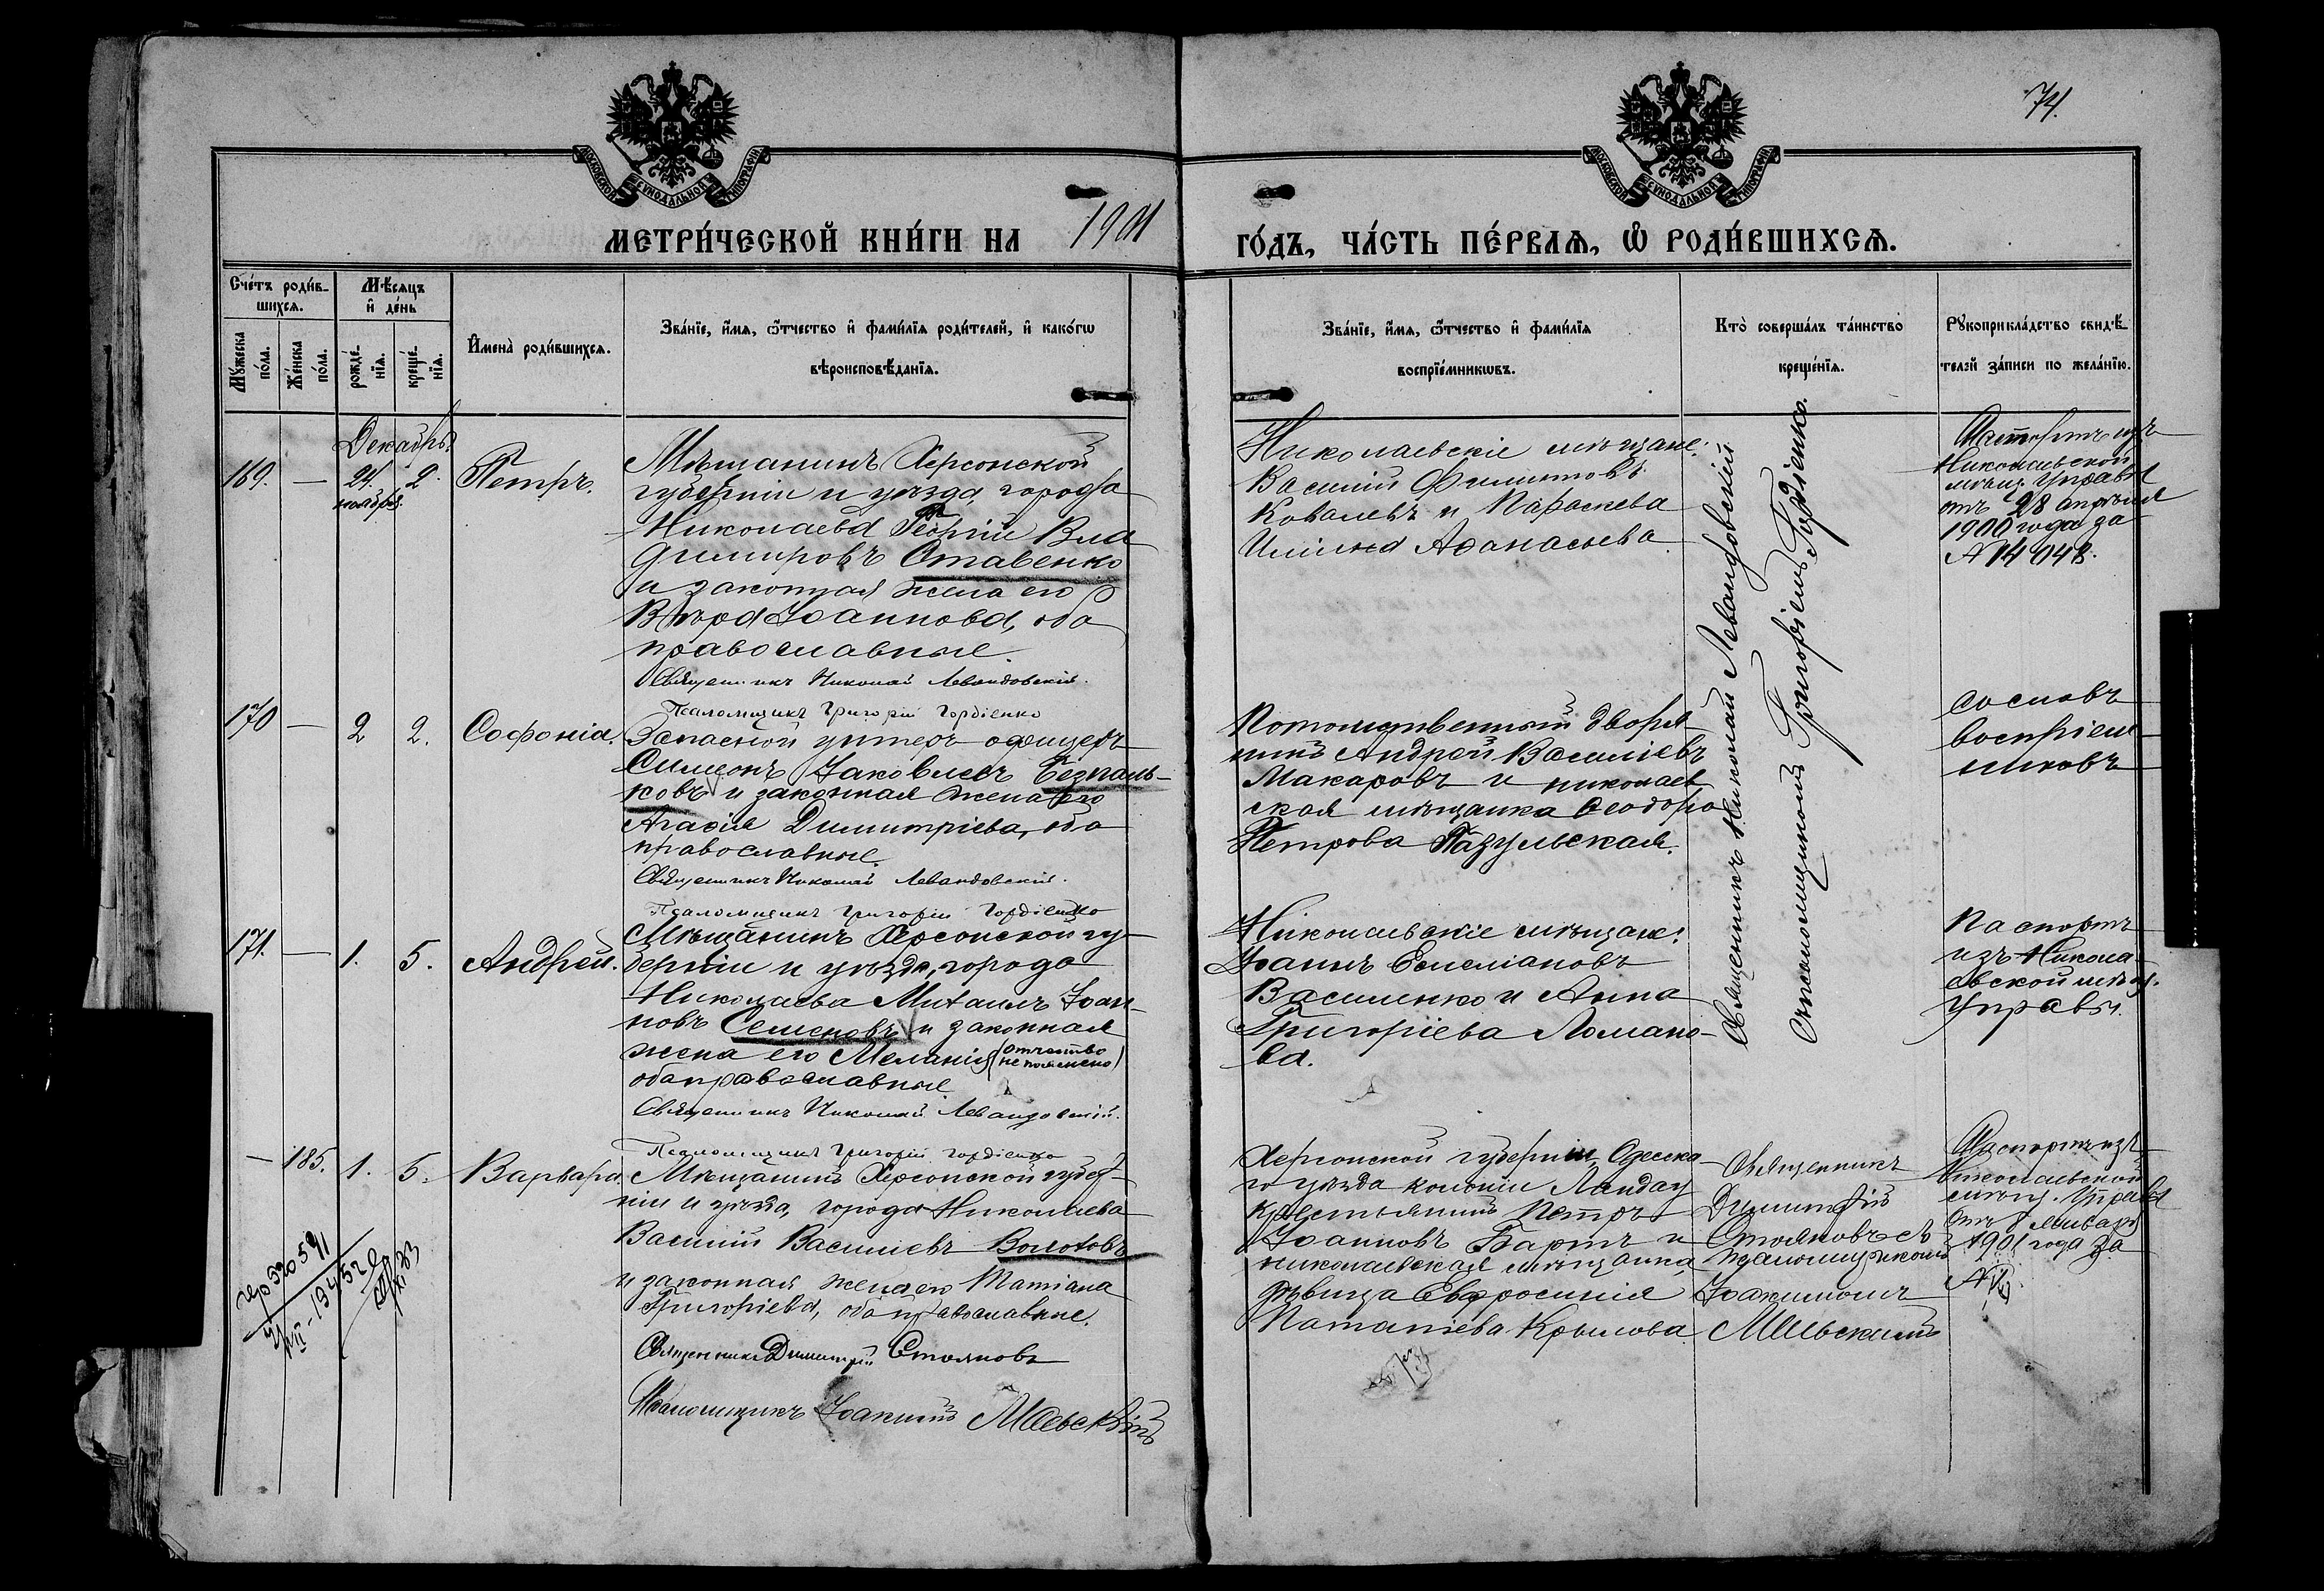 74.
МОСКОВСКОЙ СѴНОДАЛЬНОЙ ТИПОГРАФІИ
МОСКОВСКОЙ СѴНОДАЛЬНОЙ ТИПОГРАФІИ
МЕТРИ́ЧЕСКОЙ КНИ́ГИ НА 1901 ГО́ДЪ, ЧА́СТЬ ПЕ́РВАѦ, Ѡ҆ РОДИ́ВШИХСѦ.
Сче́тъ роди́в-
шихсѧ.
Мѣ́сѧцъ
и҆ де́нь
Мꙋ́жеска
по́ла.
Же́нска
по́ла.
рожде́-
нїѧ.
креще́-
нїѧ.
И҆мена̀ роди́вшихсѧ.
Зва́нїе, и҆́мѧ, ѻ҆́тчество и҆ фами́лїѧ роди́телей, и҆ како́гѡ
вѣроисповѣ́данїѧ.
Зва́нїе, и҆́мѧ, ѻ҆́тчество и҆ фами́лїѧ
воспрїе́мникѡвъ.
Кто̀ соверша́лъ та́инство
креще́нїѧ.
Рꙋкоприкла́дство свидѣ́-
телей за́писи по жела́нїю.
Декабрь.
169. — 24. 2.
ноября.
Петръ.
Мѣщанинъ Херсонской
губерніи и уѣзда, города
Николаева Георгій Вла
димировъ Ставенко
и законная жена его
Вѣра Іоаннова, оба
православные.
Священникъ Николай Левандовскій.
Псаломщикъ Григорій Гордіенко
Николаевскіе мѣщане:
Василій Филиповъ
Ковалевъ и Параскева
Ильина Аѳанасьева.
Священникъ Николай Левандовскій
съ псаломщикомъ Григоріемъ Гордіенко.
Паспортъ изъ
Николаевской
мѣщ. Управы
отъ 28 апрѣля
1900 года за
№ 14048.
170 — 2 2. Софонія.
Запасной унтеръ-офицеръ
Симеонъ Іаковлевъ Безпаль-
ковъ и законная жена его
Агафія Димитріева, оба
православные.
Священникъ Николай Левандовскій.
Псаломщикъ Григорій Гордіенко
Потомственный дворя-
нинъ Андрей Василіевъ
Макаровъ и николаев
ская мѣщанка Ѳеодора
Петрова
со словъ
воспріем
никовъ
171. — 1. 5. Андрей.
Мѣщанинъ Херсонской гу-
берніи и уѣзда, города
Николаева Михаилъ Іоан-
новъ Семеновъ и законная
жена его Меланія (отчество
не показано)
оба православные.
Священникъ Николай Левандовскій.
Псаломщикъ Григорій Гордіенко
Николаевскіе мѣщане:
Іоаннъ Емеліановъ
Василенко и Анна
Григоріева Ломано-
ва.
Паспортъ
изъ Никола-
евской мѣщ.
Управы.
— 185. 1. 5. Варвара.
Мѣщанинъ Херсонской губер-
ніи и уѣзда, города Николаева
Василій Василіевъ Волотовъ
и законная жена его Татіана
Григоріева, оба православные.
Священникъ Димитрій Стояновъ
Псаломщикъ Іоакимъ Маевскій
Херсонской губерніи, Одесска-
го уѣзда колоніи Ландау
крестьянинъ Петръ
Іоанновъ Бартъ и
николаевская мѣщанка,
дѣвица Евфросинія
Потапіева Крылова.
Священникъ
Димитрій
Стояновъ съ
псаломщикомъ
Іоакимомъ
Маевскимъ
Паспортъ изъ
Николаевской
мѣщ. Управы
отъ
1901 года за